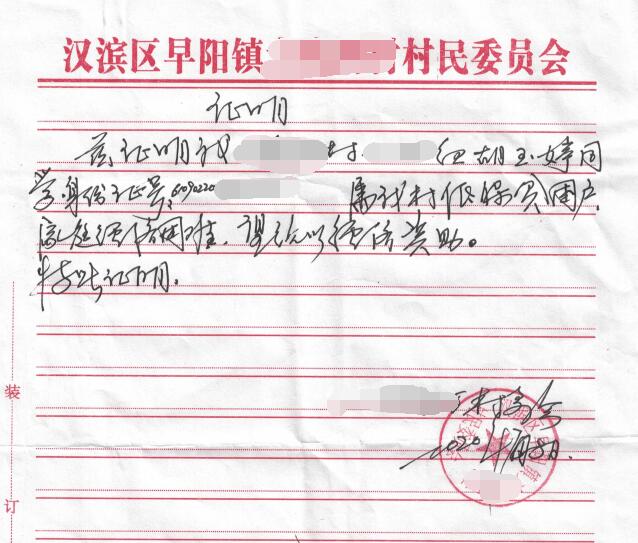 汉滨区早阳镇 村村民委员会
证明
兹证明我 村 组胡玉婷同
学,身份证号:6090220 属我村低保贫困户,
家庭经济困难,望给以经济资助。
特此证明。
村委会
2020年 月 日.
装
订